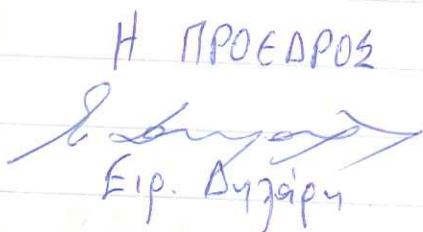 Η ΠΡΟΕΔΡΟΣ
Ειρ. Δηλάρη